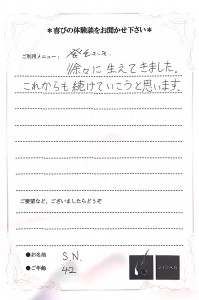 ＊喜びの体験談をお聞かせ下さい＊
ご利用メニュー：発毛コース
徐々に生えてきました。
これからも続けていこうと思います。
ご要望など、ございましたらどうぞ
●お名前 S.N.
●ご年齢 42